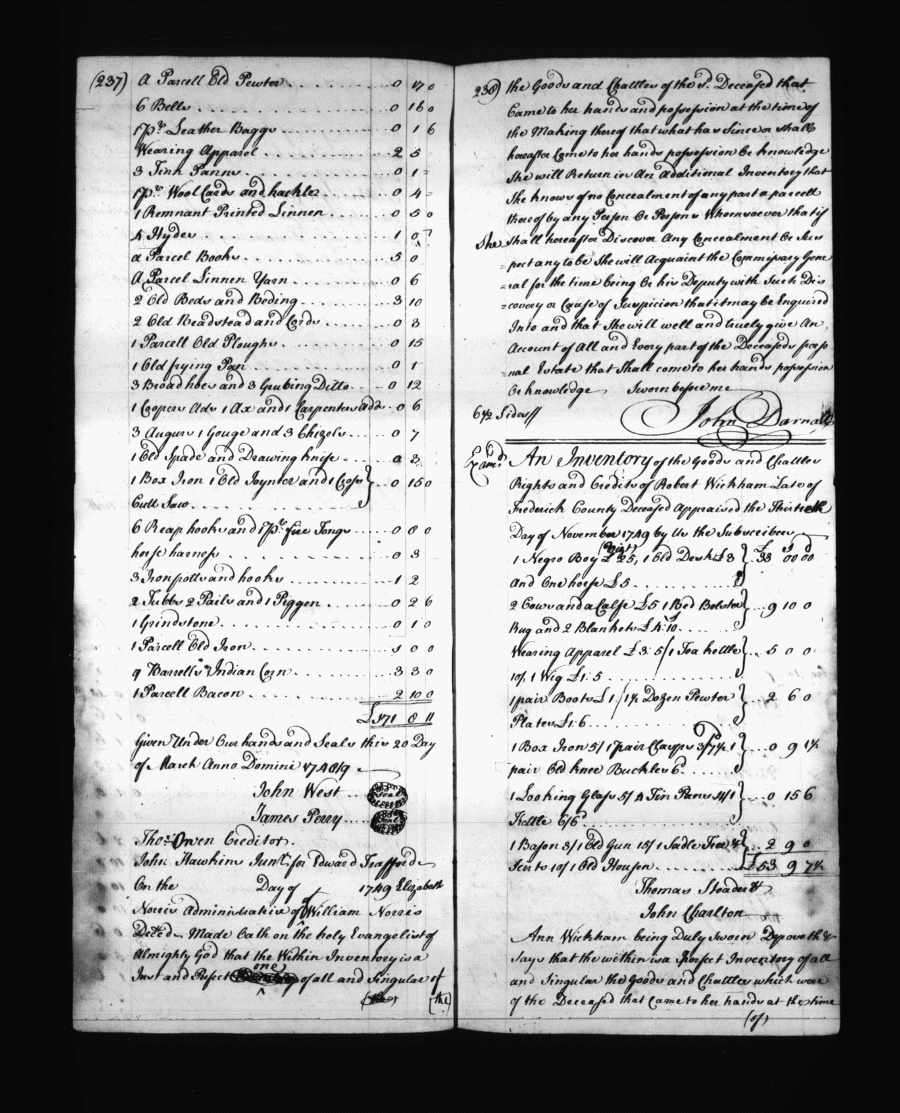 (237) A Parcell Old Pewter . . . . 0 17 0
6 Bells . . . . 0 16 0
1 pr. Leather Baggs . . . . 0 1 6
Wearing Apparel . . . . 2 5
3 Tink Panns . . . . 0 1 =
1 pr. Wool Cards and hackler . . . . 0 4 =
1 Remnant Printed Linnen . . . . 0 5 0
4 Hydes . . . . 1 0
a Parcel Books . . . . 5 0
A Parcel Linnen Yarn . . . . 0 6
2 Old Beds and Beding . . . . 3 10
2 Old Beadstead and Cords . . . . 0 8
1 Parcell Old Ploughs . . . . 0 15
1 Old frying Pan . . . . 0 1
3 Broad hoes and 3 Grubing Ditto . . . . 0 12
1 Coopers Ads 1 Ax and 1 Carpenters Adds . . 0 6
3 Augurs 1 Gouge and 3 Chizels . . . . 0 7
1 Old Spade and Drawing knife . . . . 0 3
1 Box Iron 1 Old Joynter and 1 Cross } 0 15 0
Cutt Saw . . . .
6 Reap hooks and 1 pr. fire Tongs . . . . 0 8 0
horse harness . . . . 0 3
3 Iron potts and hooks . . . . 1 2
2 Tubbs 2 Pails and 1 Piggen . . . . 0 2 6
1 Grindstone . . . . 0 1 0
1 Parcell Old Iron 0 0
9 Barrells Indian Corn . . . . 3 3 0
1 Parcell Bacon . . . . 2 10 0
£171 8 11
Given Under Our hands and Seals this 20 Day
of March Anno Domini 1748/9
John West . . . Seal
James Perry . . . Seal
Thos. Owen Creditor.
John Hawkins Junr. for Edward Trafford
On the Day of 1749 Elizabeth
Norris Administratrix of William Norris
Deced. Made Oath on the holy Evangelist of
Almighty God that the Within Inventory is a
Just and Perfect one of all and Singular of
(the)
238) the Goods and Chattles of the sd. Deceased that
Came to her hands and possession at the time of
the Making thereof that what has Since or shall
hereafter Come to her hands possession be knowledge
She will Return in An Additional Inventory that
She knows of no Concealment of any part a parcell
thereof by any Person Or Persons Whomsoever that if
She shall hereafter Discover Any Concealment Or Sus
=pect any to be She will Acquaint the Commissary Gene
=ral for the time being Or his Deputy with Such Dis
=covery or Cause of Suspicion that it may be Enquired
Into and that She will well and truely give An
Account of All and Every part of the Deceaseds perso
=nal Estate that Shall come to her hands possession
Or knowledge Sworn before me
6 1/2 Sides// John Darnall
Examd. An Inventory of the Goods and Chattles
Rights and Credits of Robert Wickham Late of
Frederick County Deceased Appraised the Thirtieth
Day of November 1749 by Us the Subscribers
1 Negro Boy £25, 1 Old Desk £3 } £33 s00 d00
And One horse £5 . . . .
2 Cows and a Calfe £5 1 Bed Bolster } 9 10 0
Rug and 2 Blankets £4:10 . . . .
Wearing Apparel £3:5/ 1 Tea kettle } 5 0 0
10/ 1 Wig £1:5 . . . .
1 pair Boots £1/ 1 1/2 Dozen Pewter } 2 6 0
Plates £1:6 . . . .
1 Box Iron 5/ 1 pair Clasps 3/7 1/2 1 } 0 9 1 1/2
pair Old knee Buckles 6d. . . .
1 Looking Glass 5/ 4 Tin Panns 4/ 1 } 0 15 6
Kettle 6/6d . . . .
1 Bason 3/ 1 Old Gun 15/ 1 Sadle Tree & } 2 9 0
10/ 1 Old Housen . . . . £53 9 7 1/2
Thomas
John Charlton
Ann Wickham being Duly Sworn Deposeth &
Says that the within is a perfect Inventory of all
and Singular the Goods and Chattles which were
of the Deceased that Came to her hands at the time
(of)